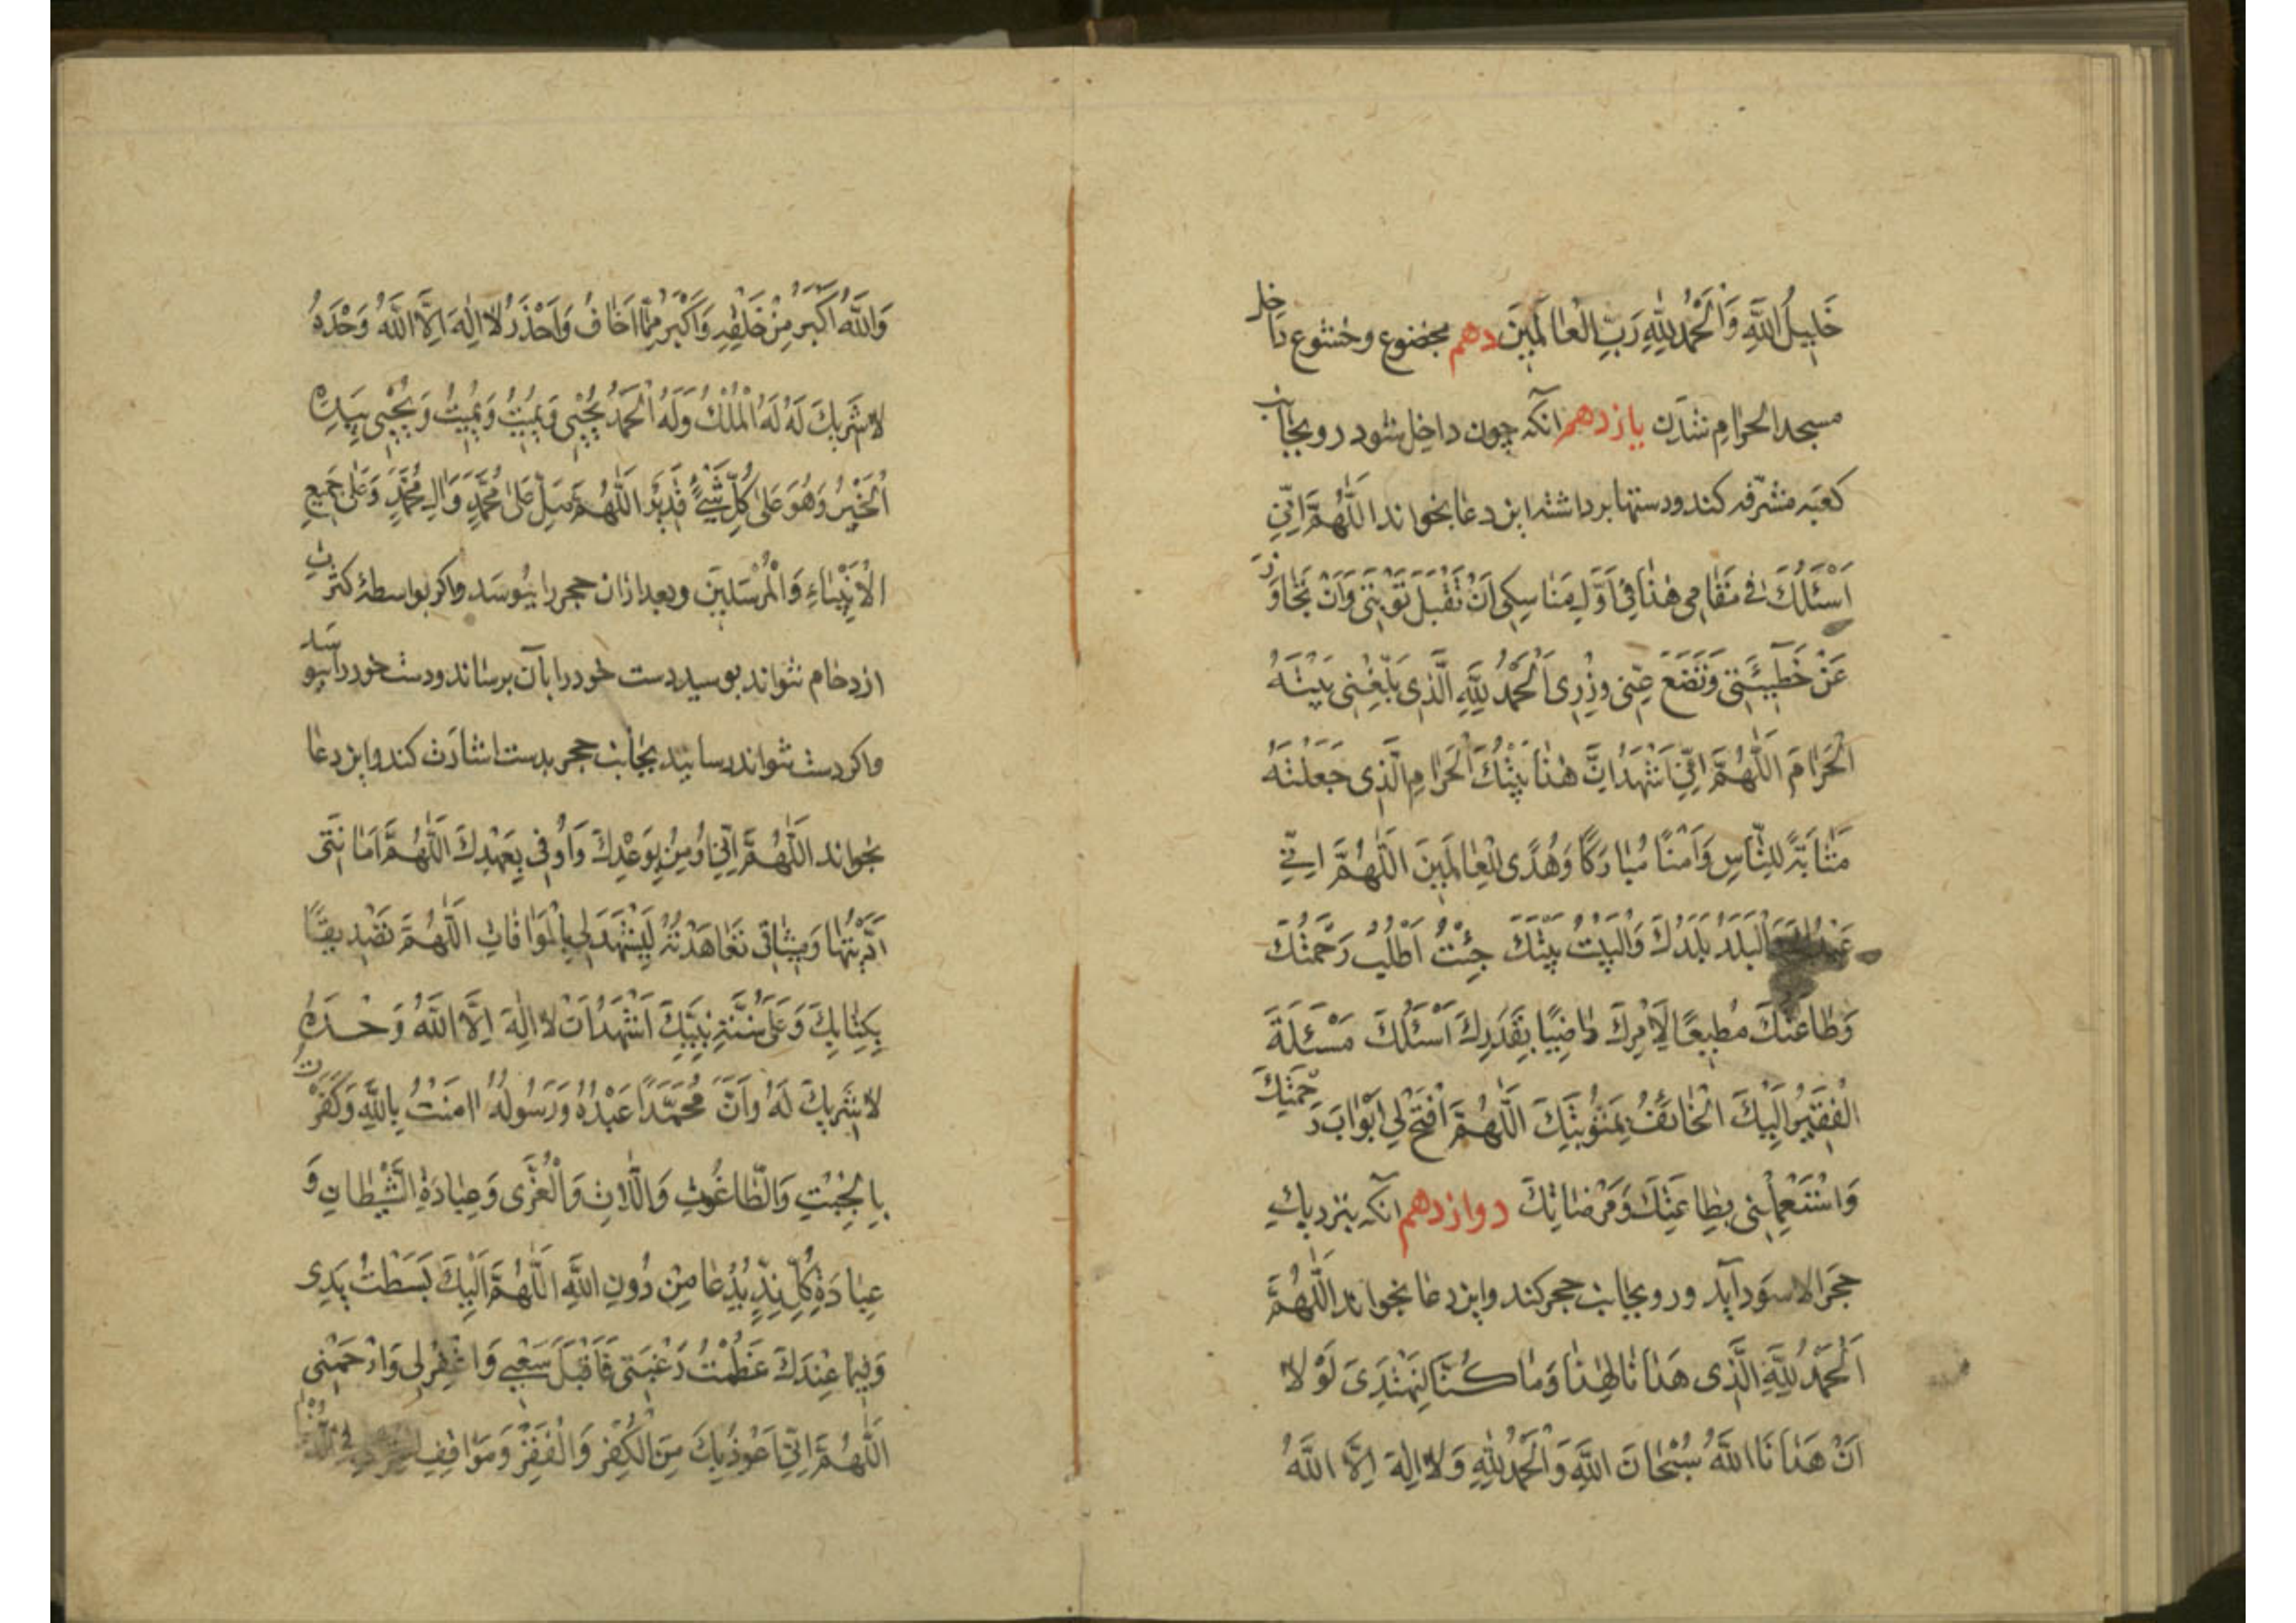 خَلِيلُ اللَّهِ وَالْحَمْدُ لِلَّهِ رَبِّ الْعَالَمِينَ دهم بخضوع وخشوع داخل
مسجد الحرام شدن یازدهم آنکه چون داخل شود رو بجانب
کعبه مشرفه کند ودستها برداشته این دعا بخواند اللَّهُمَّ اِنِّي
اَسْئَلُكَ في مَقَامِي هٰذَا في اَوَّلِ مَنَاسِكِي اَنْ تَقْبَلَ تَوْبَتِي وَاَنْ تَجَاوَزَ
عَنْ خَطِيئَتِي وَتَضَعَ عَنِّي وِزْرِي اَلْحَمْدُ لِلَّهِ الَّذِي بَلَّغَنِي بَيْتَهُ
الْحَرَامَ اللَّهُمَّ اِنِّي اَشْهَدُ اَنَّ هٰذَا بَيْتُكَ الْحَرَامِ الَّذِي جَعَلْتَهُ
مَثَابَةً لِلنَّاسِ وَاَمْنًا مُبَارَكًا وَهُدًى لِلْعَالَمِينَ اللَّهُمَّ اِنِّي
الْبَلَدُ بَلَدُكَ وَالْبَيْتُ بَيْتُكَ جِئْتُ اَطْلُبُ رَحْمَتَكَ
وَطَاعَتَكَ مُطِيعًا لِاَمْرِكَ رَاضِيًا بِقَدَرِكَ اَسْئَلُكَ مَسْئَلَةَ
الْفَقِيرِ اِلَيْكَ الْخَائِفِ بِعَقُوبَتِكَ اللَّهُمَّ افْتَحْ لِي اَبْوَابَ رَحْمَتِكَ
وَاسْتَعْمِلْنِي بِطَاعَتِكَ وَمَرْضَاتِكَ دوازدهم آنکه بنزدیك
حجر الاسود آید ورو بجانب حجر کند واین دعا بخواند اللَّهُمَّ
اَلْحَمْدُ لِلَّهِ الَّذِي هَدَانَا لِهٰذَا وَمَا كُنَّا لِنَهْتَدِيَ لَوْلَا
اَنْ هَدَانَا اللَّهُ سُبْحَانَ اللَّهِ وَالْحَمْدُ لِلَّهِ وَلَا اِلٰهَ اِلَّا اللَّهُ
وَاللَّهُ اَكْبَرُ مِنْ خَلْقِهِ وَاَكْبَرُ مِمَّا اَخَافُ وَاَحْذَرُ لَا اِلٰهَ اِلَّا اللَّهُ وَحْدَهُ
لَا شَرِيكَ لَهُ لَهُ الْمُلْكُ وَلَهُ الْحَمْدُ يُحْيِي وَيُمِيتُ وَيُمِيتُ وَيُحْيِي بِيَدِهِ
الْخَيْرُ وَهُوَ عَلٰى كُلِّ شَيْءٍ قَدِيرٌ اللَّهُمَّ صَلِّ عَلٰى مُحَمَّدٍ وَالِ مُحَمَّدٍ وَعَلٰى جَمِيعِ
الْاَنْبِيَاءِ وَالْمُرْسَلِينَ وبعد ازان حجر را ببوسد واکر بواسطهٔ کثرت
ازدحام نتواند بوسید دست خود را بآن برساند ودست خود را ببوسد
واکر دست نتواند رسانید بجانب حجر بدست اشارت کند واین دعا
بخواند اللَّهُمَّ اِنِّي اُومِنُ بِوَعْدِكَ وَاُوفِي بِعَهْدِكَ اللَّهُمَّ اَمَانَتِي
اَدَّيْتُهَا وَمِيثَاقِي تَعَاهَدْتُهُ لِيَشْهَدَ لِي بِالْمُوَافَاتِ اللَّهُمَّ تَصْدِيقًا
بِكِتَابِكَ وَعَلٰى سُنَّةِ نَبِيِّكَ اَشْهَدُ اَنْ لَا اِلٰهَ اِلَّا اللَّهُ وَحْدَهُ
لَا شَرِيكَ لَهُ وَاَنَّ مُحَمَّدًا عَبْدُهُ وَرَسُولُهُ اامَنْتُ بِاللَّهِ وَكَفَرْتُ
بِالْجِبْتِ وَالطَّاغُوتِ وَاللَّاتِ وَالْعُزَّى وَعِبَادَةِ الشَّيْطَانِ وَ
عِبَادَةِ كُلِّ نِدٍّ يُدْعَا مِنْ دُونِ اللَّهِ اللَّهُمَّ اِلَيْكَ بَسَطْتُ يَدِي
وَفِيمَا عِنْدَكَ عَظُمَتْ رَغْبَتِي فَاقْبَلْ سَعْيِي وَاغْفِرْ لِي وَارْحَمْنِي
اللَّهُمَّ اِنِّي اَعُوذُ بِكَ مِنَ الْكُفْرِ وَالْفَقْرِ وَمَوَاقِفِ